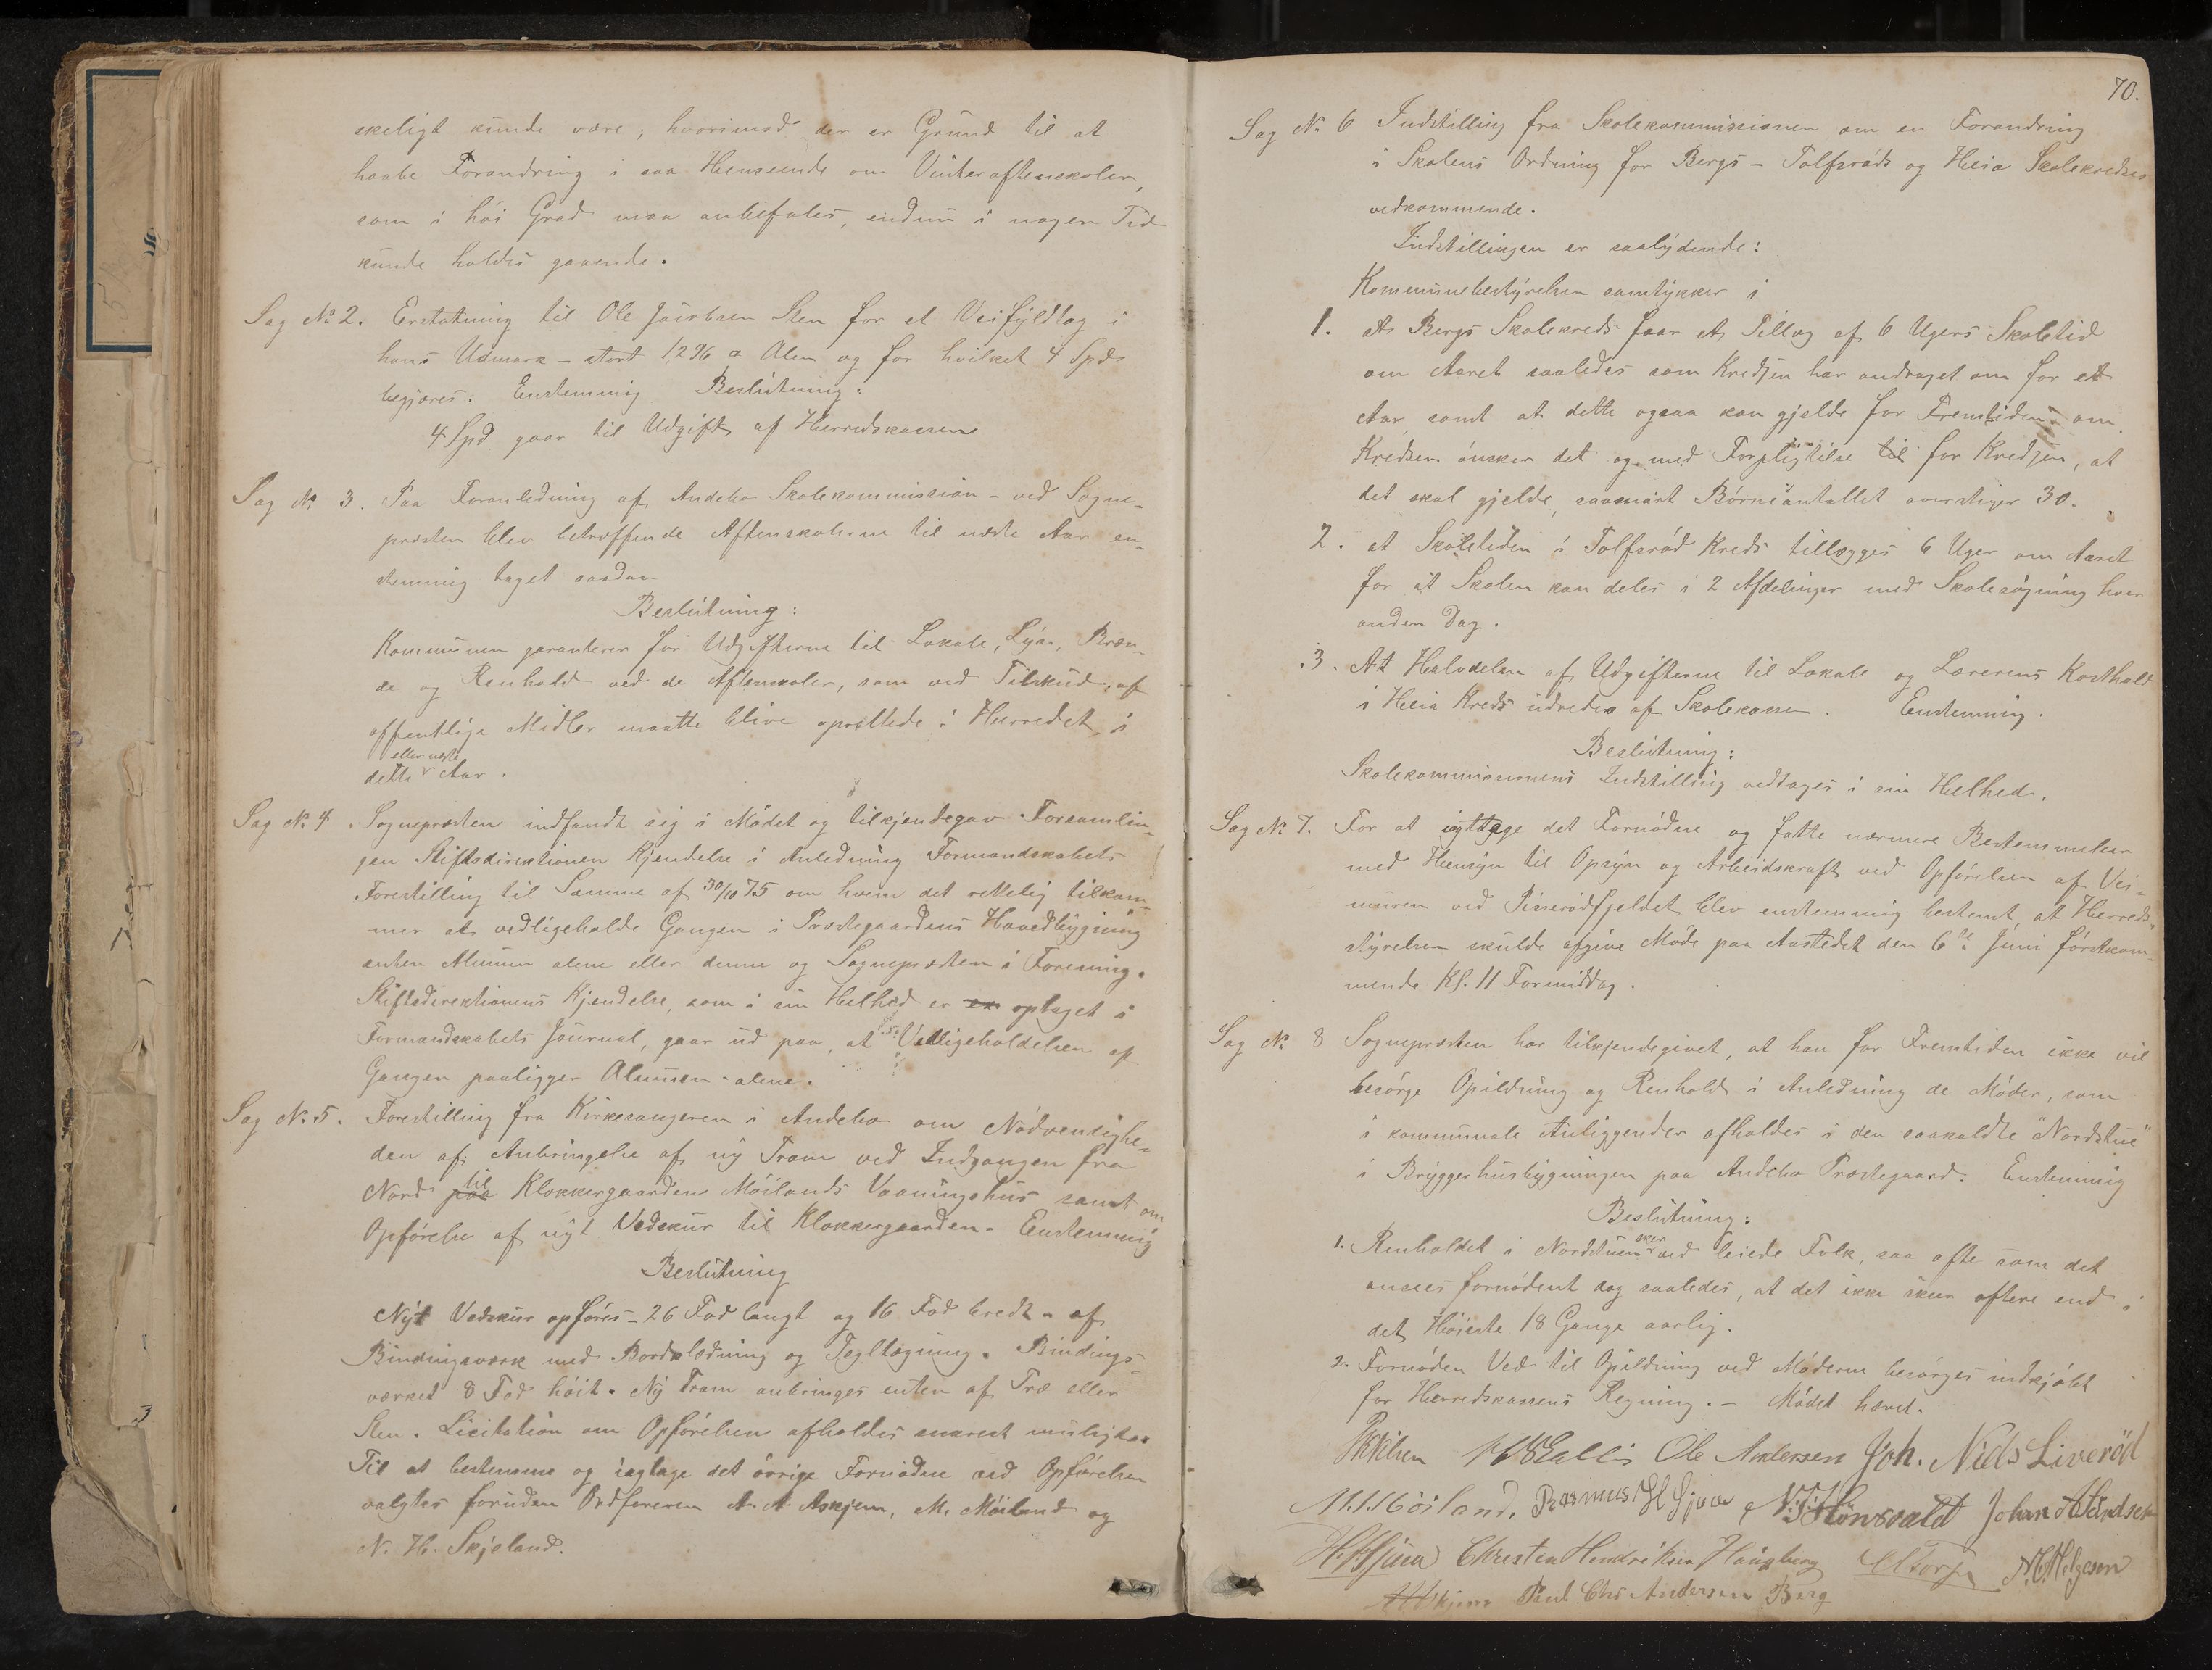 skeligt kunde være; hvorimod der er Grund til at
haabe Forandring i saa Henseende om Vinteraftenskolen,
som i høi Grad maa anbefales, endnu i nogen Tid
kunde holdes gaaende.
Sag No 2. Erstatning til Ole Jacobsen Sten for et Veifyldtag i
hans Udmark - stort 1296 □ Alen og for hvilket 4 Spd.
begjæres: Enstemmig Beslutning:
4 Spd gaar til Udgift af Herredskassen
Sag No 3. Paa Foranledning af Andebo Skolekommission - ved Sogne-
præsten blev betræffende Aftenskolerne til næste Aar en-
stemmig taget saadan
Beslutning:
Kommunen garanterer for Udgifterne til Lokale, Lys, Bræn-
de og Renhold ved de Aftenskoler, som ved Tilskud af
offentlige Midler maatte blive oprettede i Herredet i
eller næste
dette Aar.
Sag No 4. Sognepræsten indfandt sig i Mødet og tilkjendegav Forsamlin-
gen Stiftsdirektionen Kjendelse i Anledning Formandskabets
Forestilling til Samme af 30/10 75 om hvem det rettelig tilkom-
mer at vedligeholde Gangen i Præstegaardens Hovedbygning
enten Almuen alene eller denne og Sognepræsten i Forening.
Stiftsdirektionens Kjendelse, som i sin Helhed er optaget i
Formandskabets Journal, gaar ud paa, at Vedligeholdelsen af
Gangen paaligger Almuen - alene.
Sag No. 5. Forestilling fra Kirkesangeren i Andebo om Nødvendighe-
den af Anbringelse af ny Tram ved Indgangen fra
til
Nord paa Klokkergaarden Møilands Vaaningshus samt om
Opførelse af nyt Vedskur til Klokkergaarden. Enstemmig
Beslutning
Nyt Vedskur opføres - 26 Fod langt og 16 Fod bredt - af
Bindingsværk med Bordklædning og Tegltægning. Bindings-
værket 8 Fod høit. Ny Tram anbringes enten af Træ eller
Sten. Licitation om Opførelsen afholdes snarest muligt.
Til at bestemme og iagtage det øvrige Fornødne ved Opførelsen
valgtes foruden Ordføreren A. A. Askjem, M. Møiland og
N. H. Skjeland.
70.
Sag No 6 Indstilling fra Skolekommissionen om en Forandring
i Skolens Ordning for Bergs - Tolfsrøds og Heia Skolekredses
vedkommende.
Indstillingen er saalydende:
Kommunebestyrelsen samtykker i
1. at Bergs Skolekreds faar et Tillæg af 6 Ugers Skoletid
om Aaret saaledes som Kredsen har andraget om for et
Aar samt at dette ogsaa kan gjelde for Fremtiden om
Kredsen ønsker det og med Forpligtelse til for Kredsen, at
det skal gjelde, saasnart Børneantallet overstiger 30.
2. at Skoletiden i Tolfsrød Kreds tillægges 6 Uger om Aaret
for at Skolen kan deles i 2 Afdelinger med Skolesøgning hver
anden Dag.
3. At Halvdelen af Udgifterne til Lokale og Lærerens Kosthold
i Heia Kreds udredes af Skolekassen. Enstemmig.
Beslutning:
Skolekommissionens Indstilling vedtages i sin Helhed.
Sag No 7. For at iagttage det Fornødne og fatte nærmere Bestemmelser
med Hensyn til Opsyn og Arbeidskraft ved Opførelsen af Vei-
muren ved Pisserødfjeldet blev enstemmig bestemt, at Herreds-
styrelsen skulde afgive Møde paa Aastedet den 6te Juni førstkom-
mende Kl. 11 Formiddag.
Sag No 8 Sognepræsten har tilkjendegivet, at han for Fremtiden ikke vil
besørge Opildning og Renhold i Anledning de Møder, som
i kommunale Anliggender afholdes i den saakaldte "Nordstue"
i Bryggerhusbygningen paa Andebo Præstegaard. Enstemmig
Beslutning:
sker
1. Renholdet i Nordstuen ved leiede Folk, saa ofte som det
ansees fornødent dog saaledes, at det ikke sker oftere end i
det Høieste 18 Gange aarlig.
2. Fornøden Ved til Opildning ved Møderne besørges indkjøbt
for Herredskassens Regning. - Mødet hævet.
Ole Andersen Joh. Niels Liverød
M. Møiland. Rasmus H Gjøva
Christen Hendriksen Haugberg A. Helgeson
Paul Chr Andersen Berg